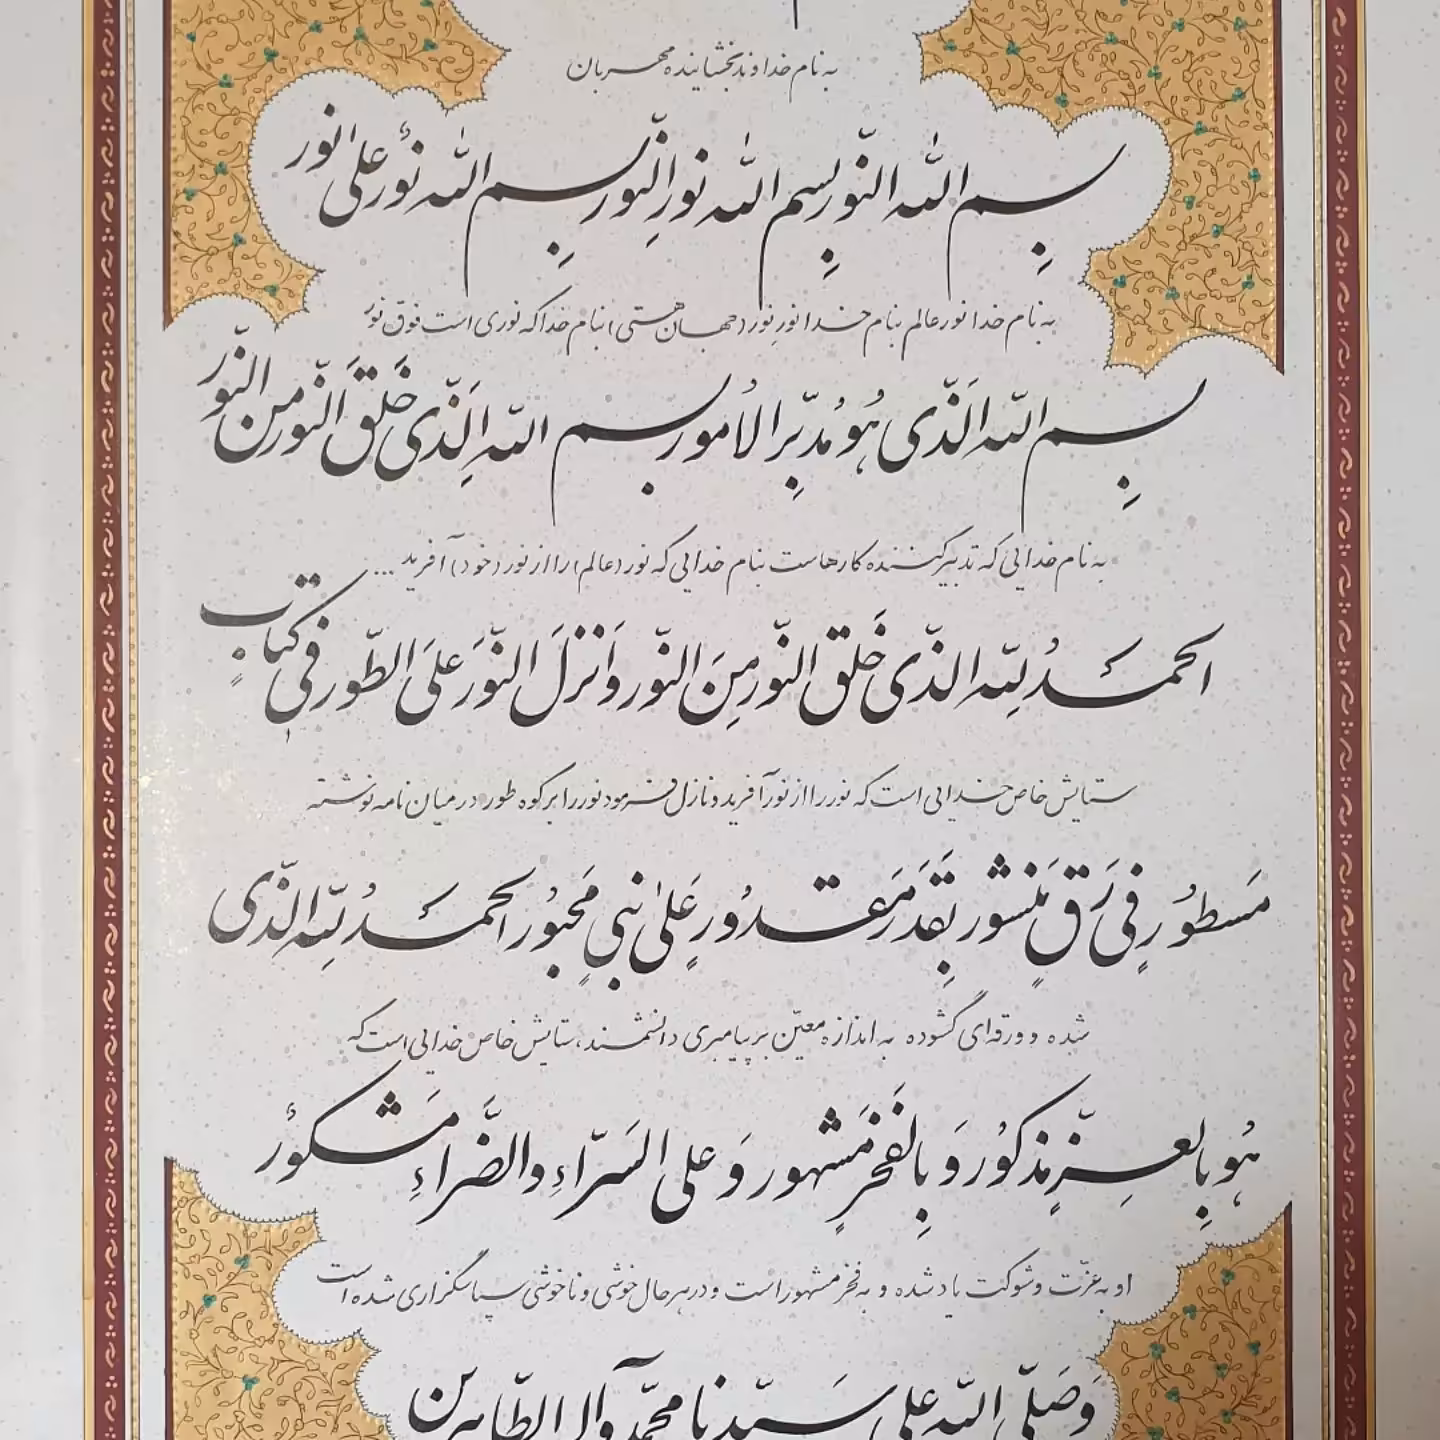 به نام خداوند بخشاینده مهربان
بِسم الله النّور بِسم الله نور النّورِ بِسم الله نورٌ علیٰ نور
به نام خدا نور عالم بنام خدا نورِ نور (جهان هستی) بنام خدا که نوری است فوق نور
بِسم الله الَّذی هُو مُدبِّر الاُمور بسم الله الَّذی خَلَقَ النّور مِن النّور
به نام خدایی که تدبیر کننده کارهاست بنام خدایی که نور (عالم) را از نور (خود) آفرید ...
الحمدُ لِلّه الّذی خَلق النّور مِنَ النّور وَ انزلَ النّورَ علَی الطّور فی کتابٍ
ستایش خاص خدایی است که نور را از نور آفرید و نازل فرمود نور را بر کوه طور در میان نامه نوشته
مَسطُورٍ فی رَقٍّ مَنشور بِقَدَرٍ مَقدُورٍ عَلیٰ نبیٍ مَحبُور الحمدُ لِلّه الّذی
شده و ورقه‌ای گشوده به اندازه معیّن بر پیامبری دانشمند، ستایش خاص خدایی است که
هُو بِالعِزِّ مذکُور وَ بِالفَخرِ مَشهور وَ علی السَرّاءِ والضَّراءِ مَشکورٌ
او به عزّت و شوکت یاد شده و به فخر مشهور است و در هر حال خوشی و ناخوشی سپاسگزاری شده است
وَ صَلّی الله علی سَیّدنا محمّد وآله الطّاهرین